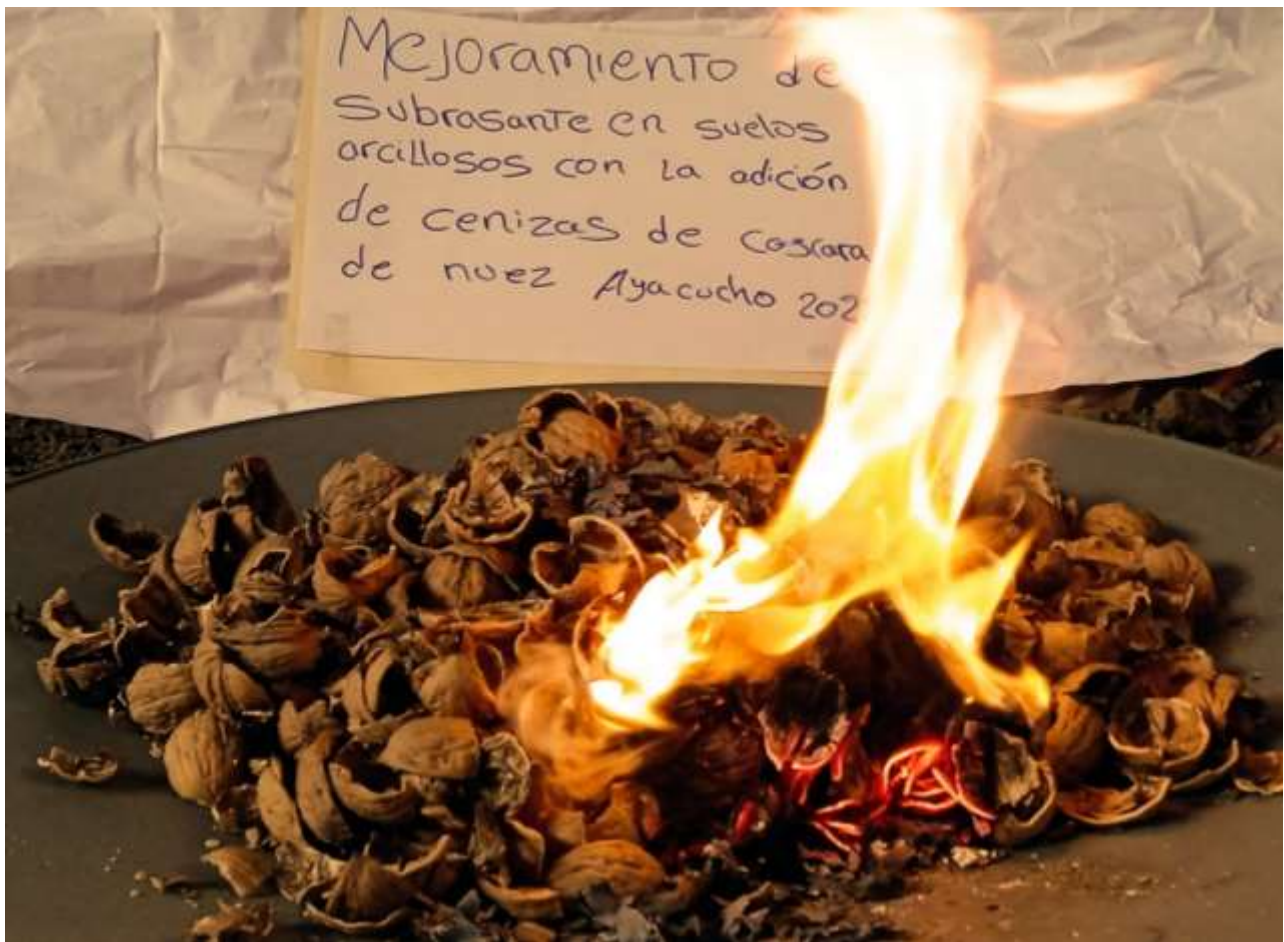 Mejoramiento de
Subrasante en suelos
arcillosos con la adición
de cenizas de coscara
de nuez Ayacucho 202